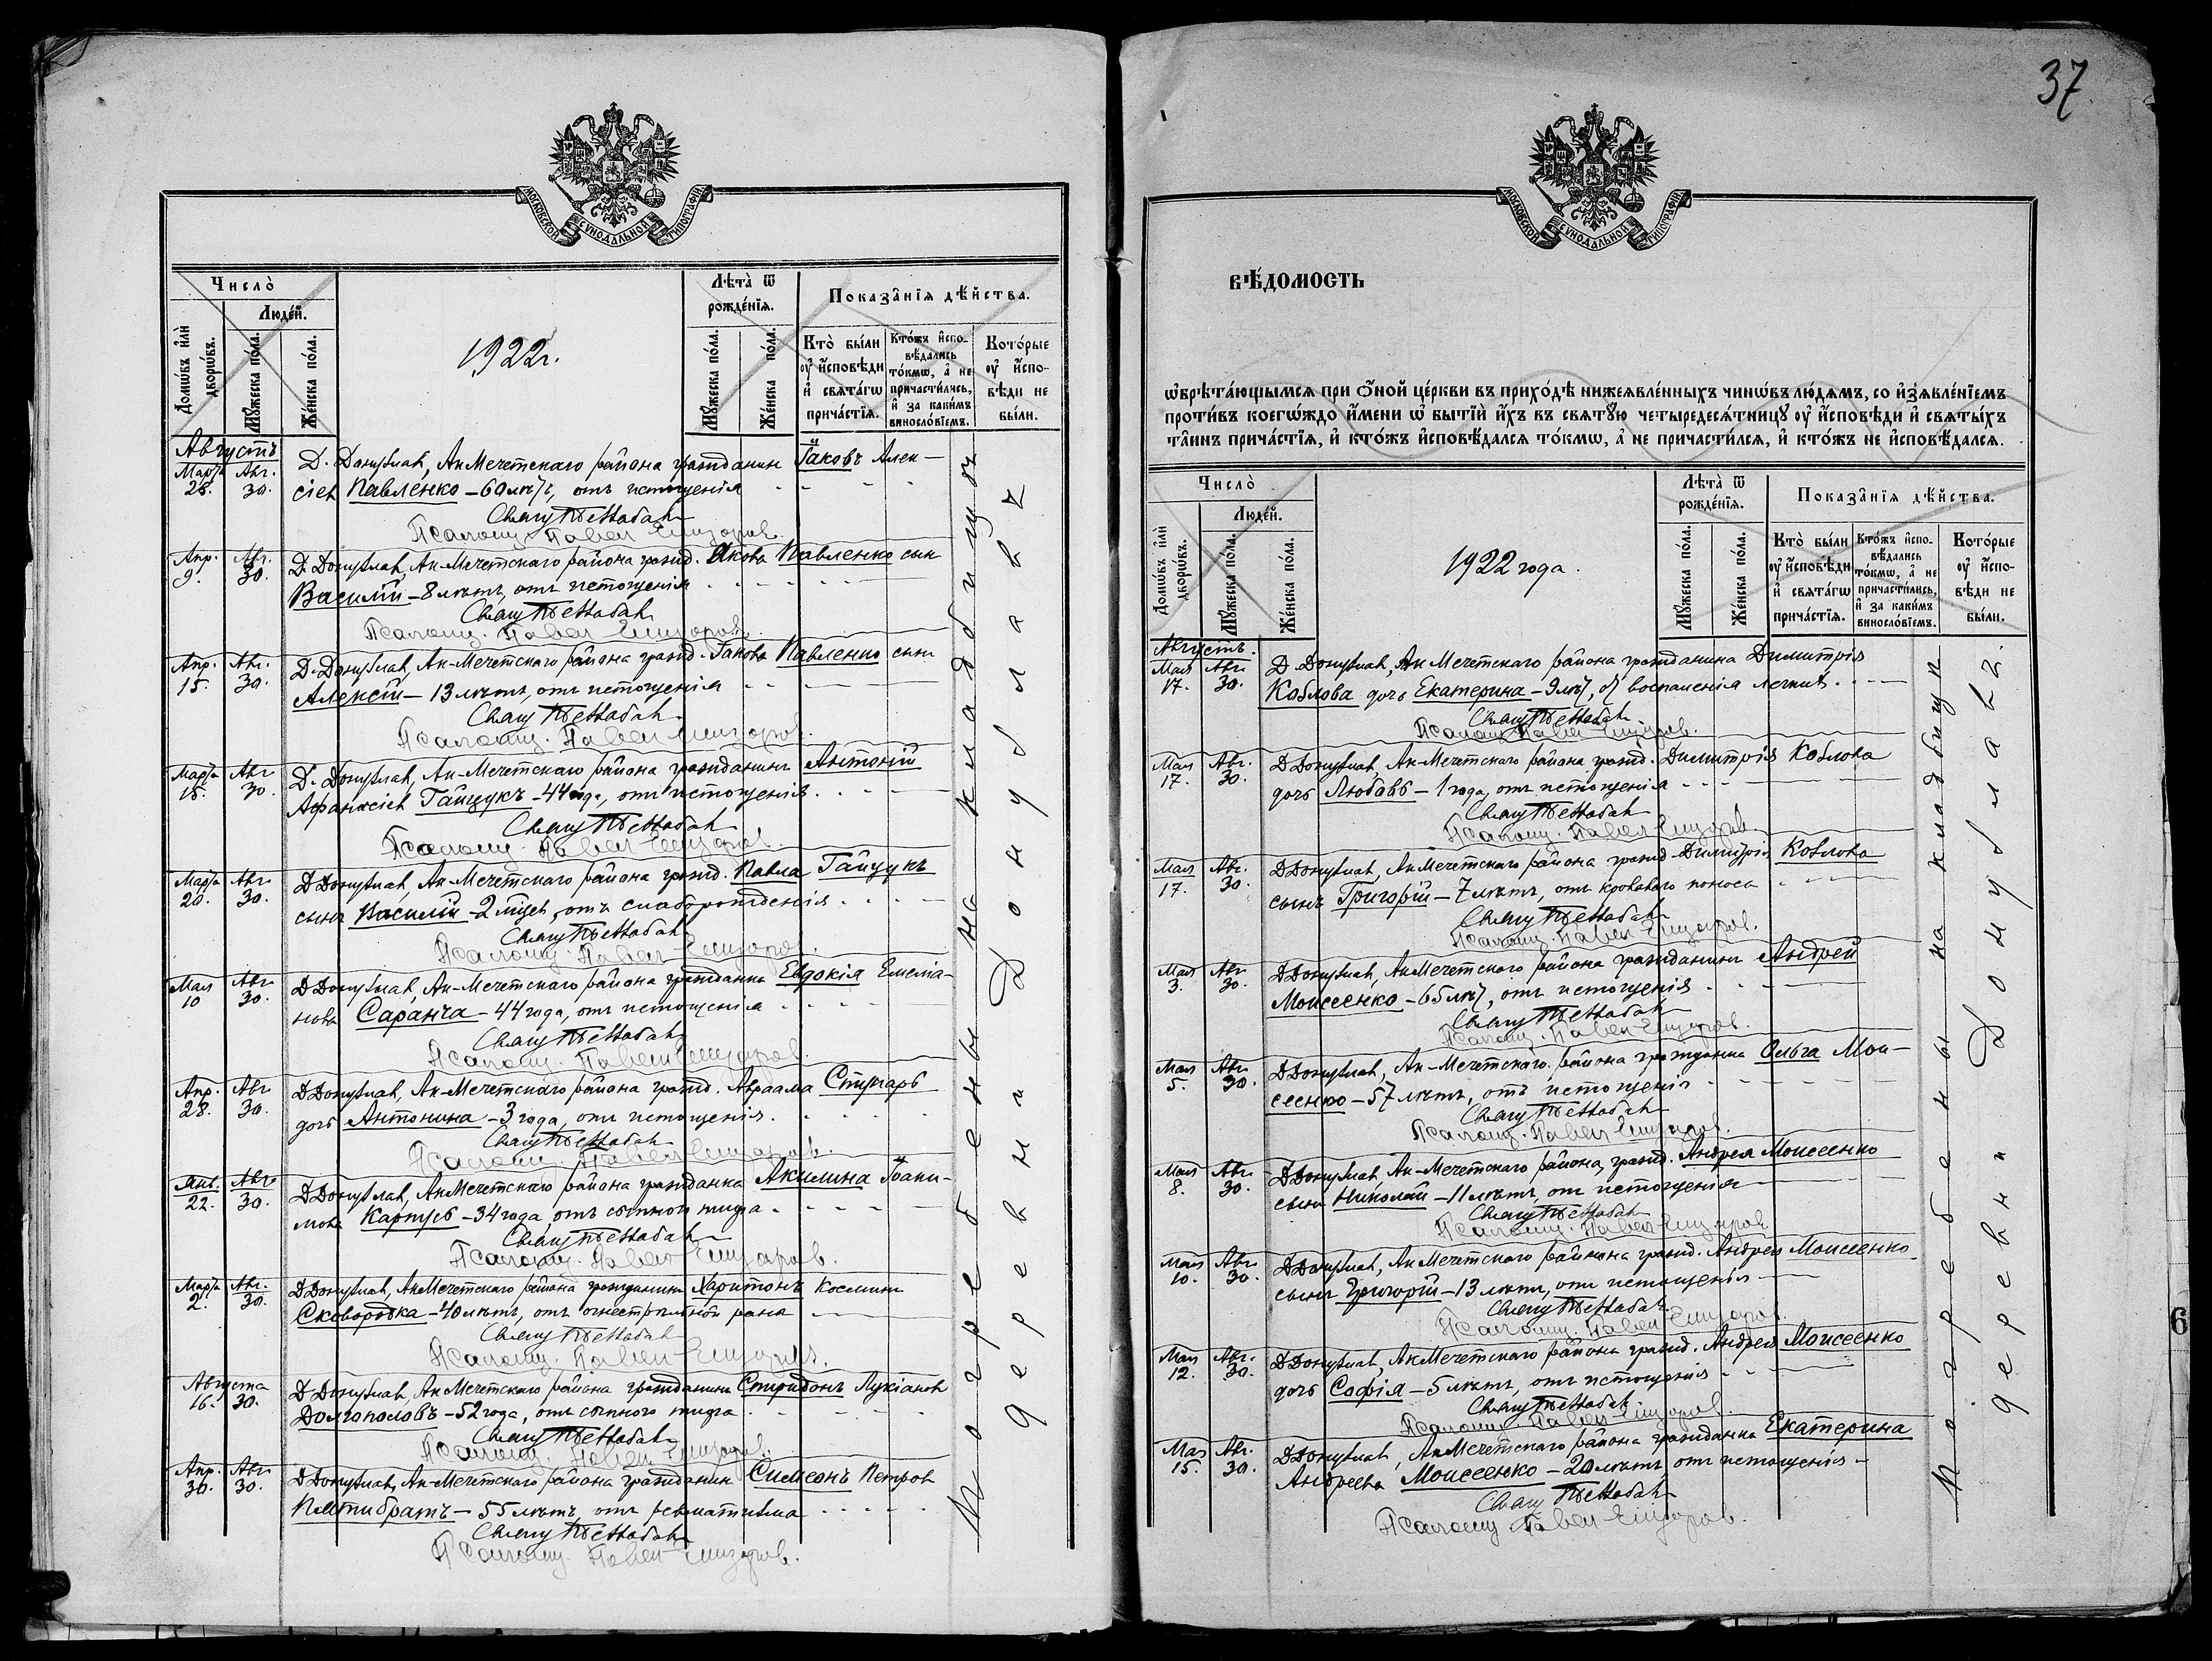 37.
МОСКОВСКОЙ СѴНОДАЛЬНОЙ ТИПОГРАФІИ
Число̀
Людей.
Домѡвъ и҆лѝ дворѡвъ.
Мꙋжеска по́ла.
Же́нска по́ла.
1922 г.
Лѣта̀ ѿ рожде́нїѧ.
Мꙋжеска по́ла.
Же́нска по́ла.
Показа̑нїѧ дѣ́йства.
Кто̀ бы́ли ᲂу҆ и҆́сповѣди и҆ свѧта́гѡ прича́стїѧ.
Кто́жъ и҆спо- вѣ́дались то́кмѡ, а҆ не причасти́лись, и҆ за каки́мъ винословїемъ.
Кото́рые ᲂу҆ и҆спо- вѣди не бы́ли.
Августъ
Марта 28. Авг. 30. Д. Донузлавъ, Ак Мечетскаго района гражданин Іаковъ Алек-
сіев Павленко – 60 лѣтъ, отъ истощенія
Свящ
Псаломщ. Павел
Апр. 9. Авг. 30. Д. Донузлав, Ак-Мечетскаго района гражд. Якова Павленко сын
Василій – 8 лѣтъ, отъ истощенія
Свящ
Псаломщ. Павел
Апр. 15. Авг. 30. Д. Донузлав, Ак-Мечетскаго района гражд. Іакова Павленко сынъ
Алексій – 13 лѣтъ, отъ истощенія
Свящ
Псаломщ. Павел
Марта 18. Авг 30. Д. Донузлав, Ак-Мечетскаго района гражданинъ Антоній
Афанасіев Гайцукъ – 44 года, отъ истощенія
Свящ
Псаломщ. Павел
Марта 20. Авг 30. Д Донузлав, Ак-Мечетскаго района гражд. Павла Гайцукъ
сынъ Василій – 2 мѣсяц, отъ слаборожденія
Свящ
Псаломщ. Павел
Мая 10 Авг 30. Д Донузлав, Ак-Мечетскаго района гражданка Евдокія Емеліа-
нова Саранча – 44 года, отъ истощенія
Свящ
Псаломщ. Павел
Апр. 28. Авг 30. Д Донузлав, Ак-Мечетскаго района гражд. Авраама Ступарь
дочь Антонина – 3 года, отъ истощенія
Свящ
Псаломщ. Павел
Янв. 22. Авг 30. Д Донузлав, Ак Мечетскаго района гражданка Акилина Іоаки-
мова Карпусь – 34 года, отъ сыпного тифа
Свящ
Псаломщ. Павел
Марта 2. Авг. 30. Д Донузлав, Ак Мечетскаго района гражданинъ Харитонъ Космин
Сковородка – 40 лѣтъ, отъ огнестрѣльной раны
Свящ
Псаломщ. Павел
Августа 16. 30. Д Донузлав, Ак Мечетскаго района гражданинъ Спиридонъ Лукіанов
Долгополовъ – 52 года, отъ сыпного тифа
Свящ
Псаломщ. Павел
Апр. 30. Авг 30. Д Донузлав, Ак Мечетскаго района гражданин Симеонъ Петров
Пятибратъ – 55 лѣтъ, отъ ревматизма
Свящ
Псаломщ. Павел
Погребены на кладбищѣ
деревни Донузлавъ
МОСКОВСКОЙ СѴНОДАЛЬНОЙ ТИПОГРАФІИ
ВѢ́ДОМОСТЬ
ѡ҆брѣта́ющымсѧ при ѻ҆́ной це́ркви въ прихо́дѣ нижеѧвле́нныхъ чинѡ́въ лю́демъ, со и҆з̾ѧвле́нїемъ
проти́въ коегѡ́ждо и҆́мени ѡ҆ бытїѝ и҆́хъ въ свѧтꙋ́ю четыредесѧ́тницꙋ ᲂу҆ и҆́сповѣди и҆ свѧты́хъ
та̑инъ прича́стїѧ, и҆ кто́жъ и҆сповѣ́далсѧ то́кмѡ, а҆ не причасти́лсѧ, и҆ кто́жъ не и҆сповѣ́далсѧ.
Число̀
Людей.
Домѡвъ и҆лѝ дворѡвъ.
Мꙋжеска по́ла.
Же́нска по́ла.
1922 года.
Лѣта̀ ѿ рожде́нїѧ.
Мꙋжеска по́ла.
Же́нска по́ла.
Показа̑нїѧ дѣ́йства.
Кто̀ бы́ли ᲂу҆ и҆́сповѣди и҆ свѧта́гѡ прича́стїѧ.
Кто́жъ и҆спо- вѣ́дались то́кмѡ, а҆ не причасти́лись, и҆ за каки́мъ винословїемъ.
Кото́рые ᲂу҆ и҆спо- вѣди не бы́ли.
Августъ.
Мая 17. Авг 30. Д Донузлав, Ак Мечетскаго района гражданина Димитрія
Козлова дочь Екатерина – 9 лѣт, от воспаленія легкихъ
Свящ
Псаломщ Павел
Мая 17. Авг. 30. Д Донузлав, Ак-Мечетскаго района гражд. Димитрія Козлова
дочь Любовь – 1 года, отъ истощенія
Свящ
Псаломщ. Павел
Мая 17. Авг 30. Д Донузлав, Ак Мечетскаго района гражд Димитрія Козлова
сынъ Григорій – 7 лѣтъ, отъ кроваваго поноса
Свящ
Псаломщ. Павел
Мая 3. Авг 30. Д Донузлав, Ак Мечетскаго района гражданинъ Андрей
Моисеенко – 65 лѣт, отъ истощенія
Свящ
Псаломщ. Павел
Мая 5. Авг 30. Д Донузлав, Ак-Мечетскаго района гражданка Ольга Мои-
сеенко – 57 лѣтъ, отъ истощенія
Свящ
Псаломщ. Павел
Мая 8. Авг 30. Д Донузлав, Ак-Мечетскаго района, гражд. Андрея Моисеенко
сынъ Николай – 11 лѣтъ, отъ истощенія
Свящ
Псаломщ. Павел
Мая 10. Авг 30. Д Донузлав, Ак Мечетскаго района гражд. Андрея Моисеенко
сынъ Григорій – 13 лѣтъ, отъ истощенія
Свящ
Псаломщ. Павел
Мая 12. Авг. 30. Д Донузлав, Ак Мечетскаго района гражд. Андрея Моисеенко
дочь Софія – 5 лѣтъ, отъ истощенія
Свящ
Псаломщ. Павел
Мая 15. Авг. 30. Д Донузлав, Ак Мечетскаго района гражданка Екатерина
Андреева Моисеенко – 20 лѣтъ, отъ истощенія
Свящ
Псаломщ Павел
Погребены на кладбищѣ
деревни Донузлавъ.
6